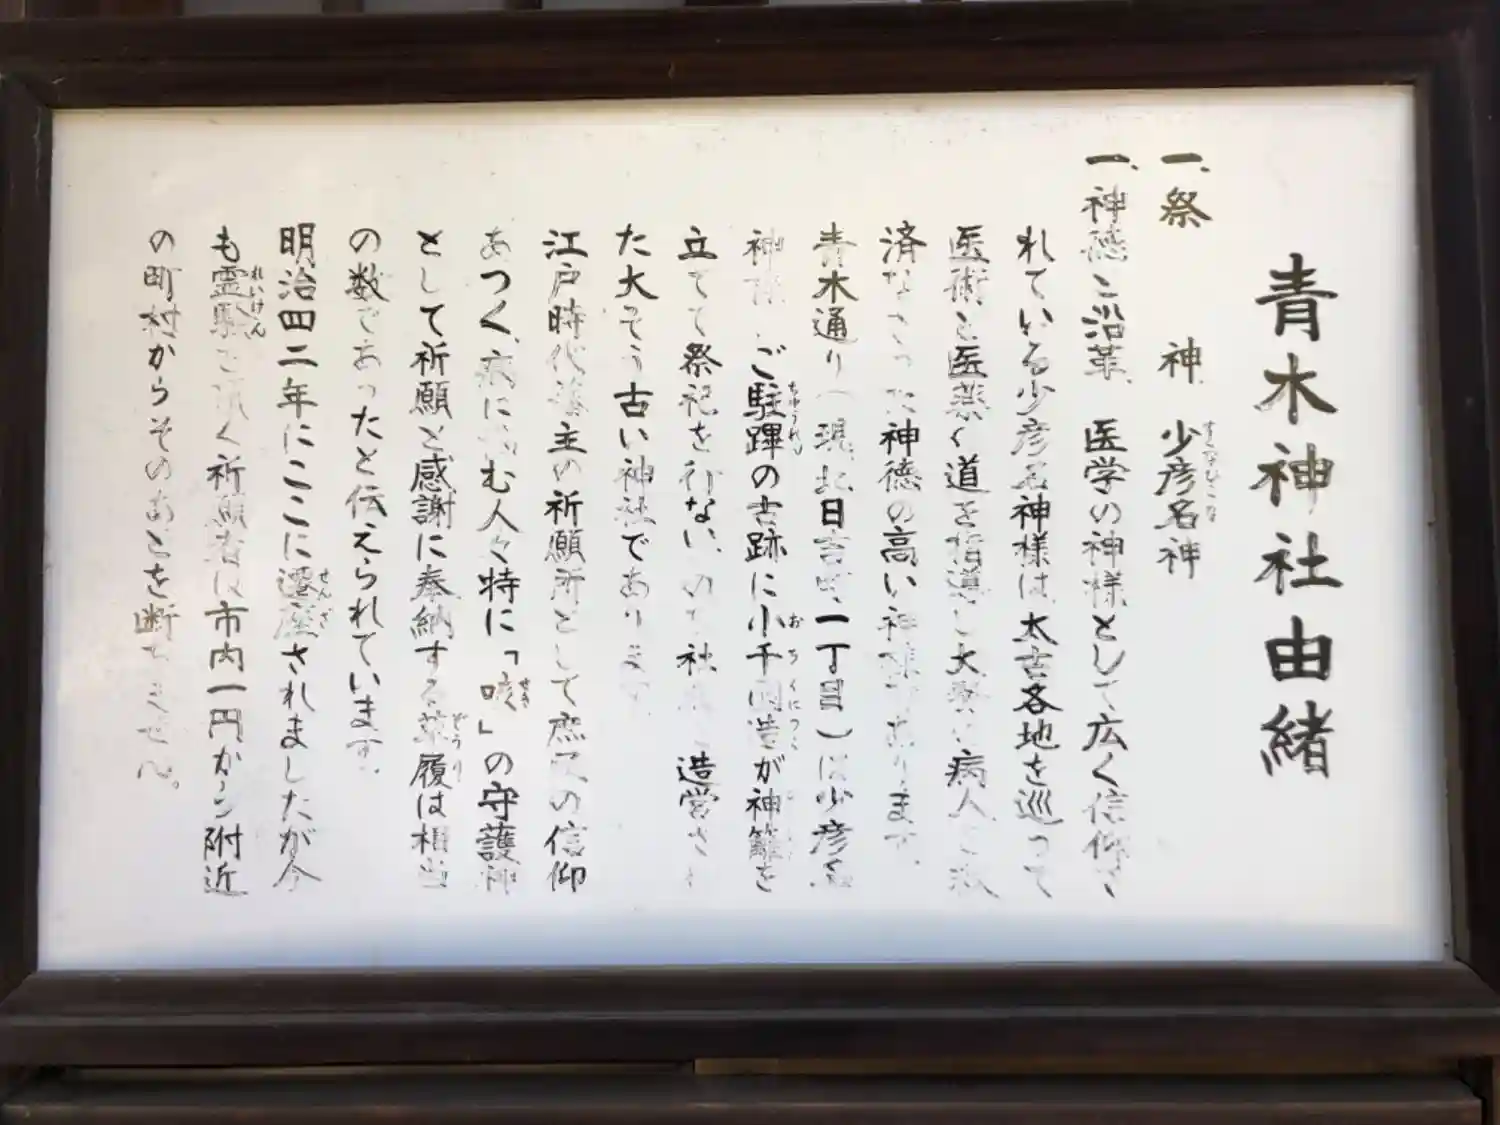 青木神社由緒
一、祭神 少彦名神
すくなひこな
一、神徳と沿革、医学の神様として広く信仰さ
れている少彦名神様は、太古各地を巡って
医術と医薬の道を指導し大勢の病人を救
済なさった神徳の高い神様であります。
青木通り(現、北日吉町、一丁目)は少彦名
神様 ご駐蹕の古跡に小千国造が神籬を
ちゅうれん
おちくにつこ
立てて祭祀を行ない、のち社 造営され
た大そう古い神社であります。
江戸時代藩主の祈願所として庶民の信仰
あつく、病に む人々特に「咳」の守護神
せき
として祈願と感謝に奉納する草履は相当
ぞうり
の数であったと伝えられています。
明治四二年にここに遷座されましたが今
せんざ
も霊験を頂く祈願者は市内一円から附近
れいけん
の町村からそのあとを断ちません。